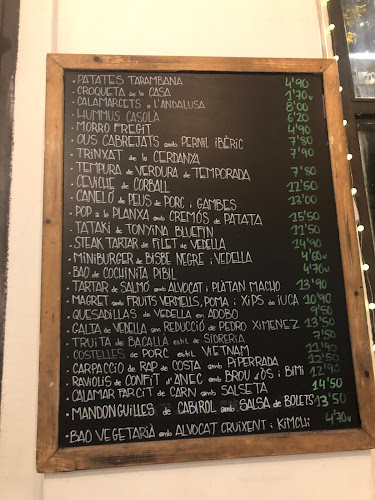 · PATATES TARAMBANA 4'90
· CROQUETA de la CASA 1'70u
· CALAMARCETS a l'ANDALUSA 8'00
· HUMMUS CASOLÀ 6'20
· MORRO FREGIT 4'90
· OUS CABREJATS amb PERNIL IBÈRIC 7'80
· TRINXAT de la CERDANYA 7'90
· TEMPURA de VERDURA de TEMPORADA 7'80
· CEVICHE de CORBALL 12'50
· CANELÓ de PEUS de PORC i GAMBES 12'00
· POP a la PLANXA amb CREMÓS de PATATA 15'50
· TATAKI de TONYINA BLUEFIN 11'50
· STEAK TARTAR de FILET de VEDELLA 14'90
· MINIBURGER de BISBE NEGRE i VEDELLA 4'60u
· BAO de COCHINITA PIBIL 4'70u
· TARTAR de SALMÓ amb ALVOCAT i PLÀTAN MACHO 13'90
· MAGRET amb FRUITS VERMELLS, POMA i XIPS de IUCA 10'90
· QUESADILLAS de VEDELLA en ADOBO 9'50
· GALTA de VEDELLA amb REDUCCIÓ de PEDRO XIMENEZ 13'50
· TRUITA de BACALLÀ estil de SIDRERIA
· COSTELLES de PORC estil VIETNAM
· CARPACCIO de RAP de COSTA amb PIPERRADA 12'50
· RAVIOLIS de CONFIT d'ÀNEC amb BROU d'OS i BIMI 12'90
· CALAMAR FARCIT de CARN amb SALSETA 14'50
· MANDONGUILLES de CABIROL amb SALSA de BOLETS 13'50
· BAO VEGETARIÀ amb ALVOCAT CRUIXENT i KIMCHI 4'70u